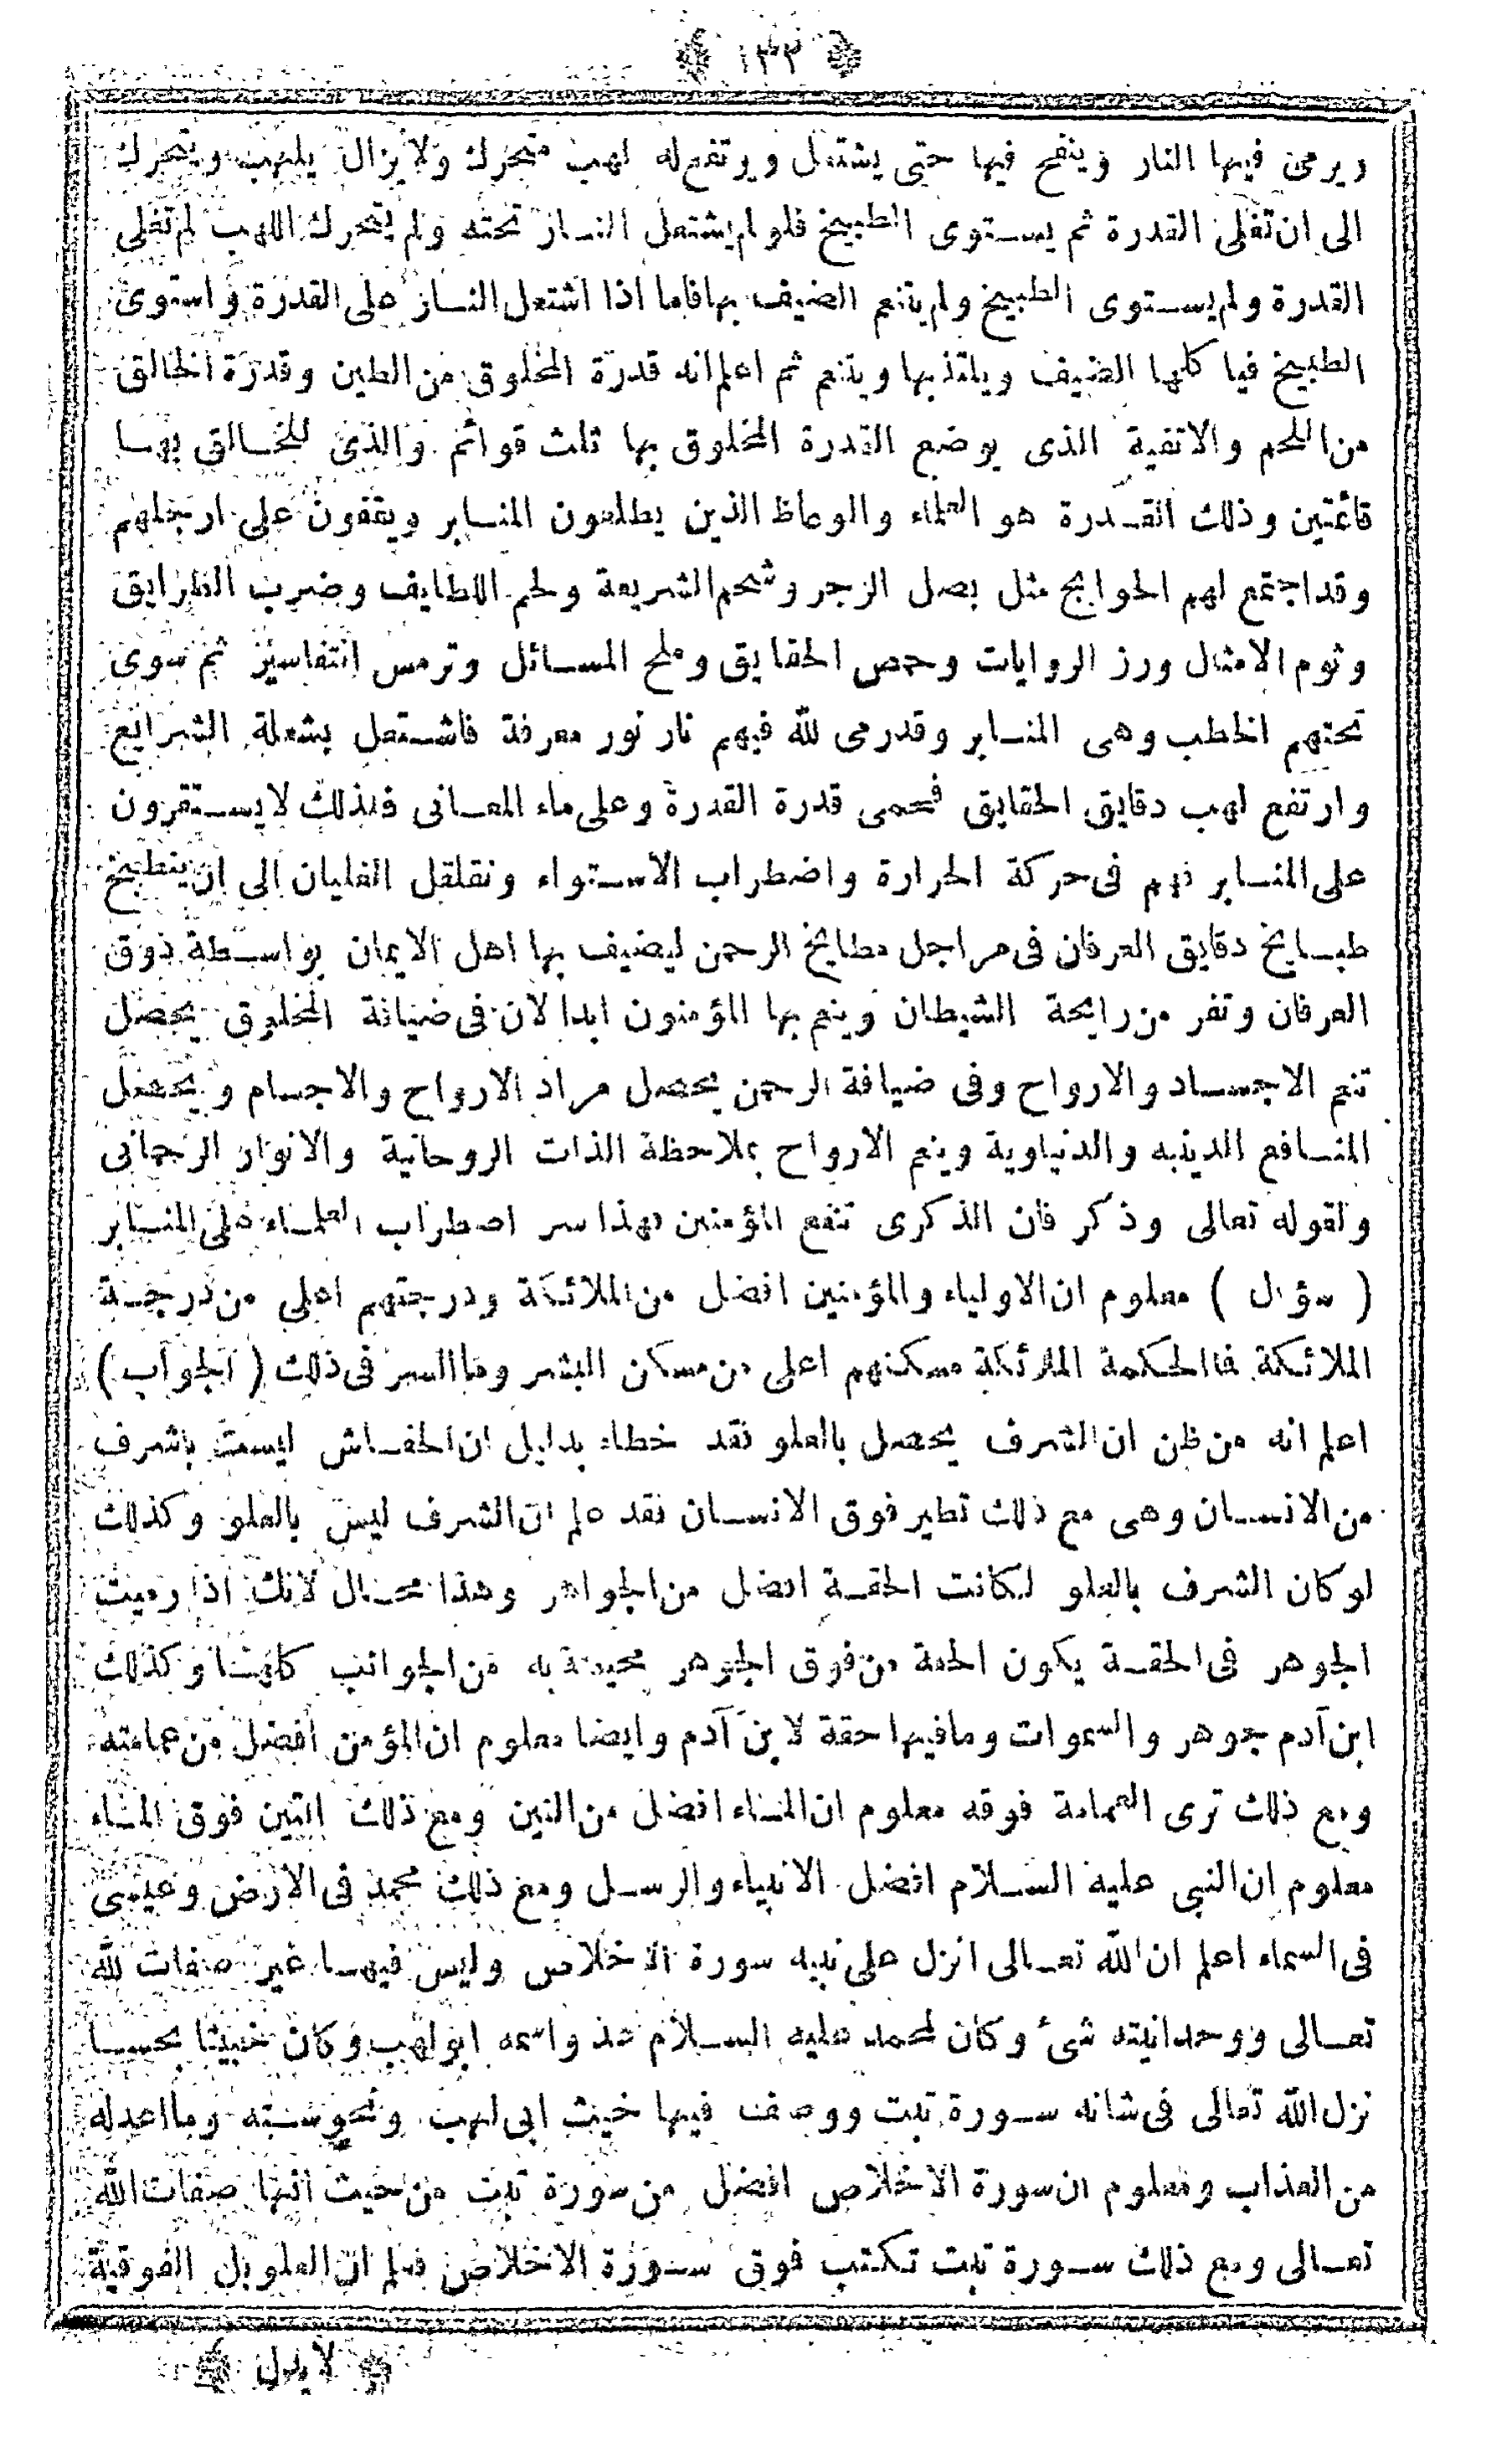 ﴿ ١٣٢ ﴾
ويرمى فيها النار وينفخ فيها حتى يشتعل ويرتفع له لهب متحرك ولا يزال يلهب ويتحرك
الى ان تغلى القدرة ثم يستوى الطبيخ فلو لم يشتعل النار تحته ولم يتحرك اللهب لم تغلى
القدرة ولم يستوى الطبيخ ولم يتنعم الضيف بها فاما اذا اشتعل النار على القدرة واستوى
الطبيخ فيأ كلها الضيف ويلتذ بها ويتنعم ثم اعلم انه قدرة المخلوق من الطين وقدرة الخالق
من اللحم والاثفية الذى يوضع القدرة المخلوق بها ثلث قوائم والذى للخالق بها
قائمتين وذلك القدرة هو العلماء والوعاظ الذين يطلعون المنابر ويقفون على ارجلهم
وقد اجتمع لهم الحوايج مثل بصل الزجر وشحم الشريعة ولحم اللطايف وضرب الطرايق
وثوم الامثال ورز الروايات وحمص الحقايق وملح المسائل وترمس التفاسير ثم سوى
تحتهم الحطب وهى المنابر وقد رمى لله فيهم نار نور معرفة فاشتعل بشعلة الشرايع
وارتفع لهب دقايق الحقايق فحمى قدرة القدرة وعلى ماء المعانى فلذلك لا يستقرون
على المنابر فهم فى حركة الحرارة واضطراب الاستواء وتقلقل الغليان الى ان ينطبخ
طبايخ دقايق العرفان فى مراجل مطابخ الرحمن ليضيف بها اهل الايمان بواسطة ذوق
العرفان وتفر من رايحة الشيطان وينعم بها المؤمنون ابدا لان فى ضيافة المخلوق يحصل
تنعم الاجساد والارواح وفى ضيافة الرحمن يحصل مراد الارواح والاجسام ويحصل
المنافع الدينيه والدنياوية وينعم الارواح بملاحظة الذات الروحانية والانوار الرحمانى
ولقوله تعالى وذكر فان الذكرى تنفع المؤمنين فهذا سر اضطراب العلماء على المنابر
( سؤال ) معلوم ان الاولياء والمؤمنين افضل من الملائكة ودرجتهم اعلى من درجة
الملائكة فما الحكمة الملائكة مسكنهم اعلى من مسكن البشر وما السر فى ذلك ( الجواب )
اعلم انه من ظن ان الشرف يحصل بالعلو فقد خطاء بدليل ان الخفاش ليست باشرف
من الانسان وهى مع ذلك تطير فوق الانسان فقد علم ان الشرف ليس بالعلو وكذلك
لوكان الشرف بالعلو لكانت الحقة افضل من الجواهر وهذا محال لانك اذا رميت
الجوهر فى الحقة يكون الحقة من فوق الجوهر محيطة به من الجوانب كلها وكذلك
ابن آدم جوهر والسموات وما فيها حقة لابن آدم وايضا معلوم ان المؤمن افضل من عمامته
ومع ذلك ترى العمامة فوقه معلوم ان الماء افضل من التبن ومع ذلك التبن فوق الماء
معلوم ان النبى عليه السلام افضل الانبياء والرسل ومع ذلك محمد فى الارض وعيسى
فى السماء اعلم ان الله تعالى انزل على نبيه سورة الاخلاص وليس فيها غير صفات لله
تعالى ووحدانيته شئ وكان لمحمد عليه السلام واسمه ابو لهب وكان خبيثا
نزل الله تعالى فى شانه سورة تبت ووصف فيها خبث ابى لهب ونحوسته وما اعد له
من العذاب ومعلوم ان سورة الاخلاص افضل من سورة تبت من حيث انها صفات الله
تعالى ومع ذلك سورة تبت تكتب فوق سورة الاخلاص فعلم ان العلو بل الفوقية
﴿ لا يدل ﴾